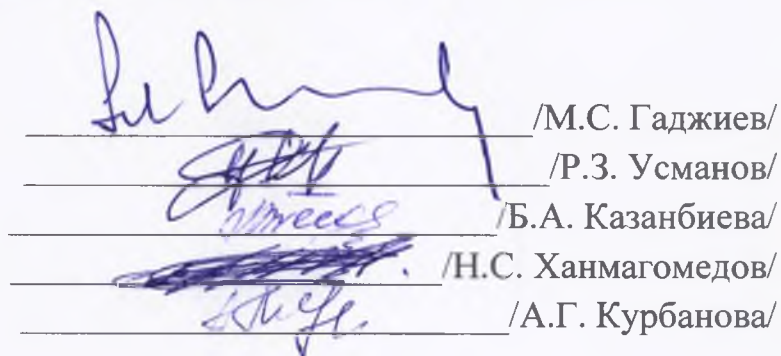 /М.С. Гаджиев/
/Р.З. Усманов/
/Б.А. Казанбиева/
/Н.С. Ханмагомедов/
/А.Г. Курбанова/